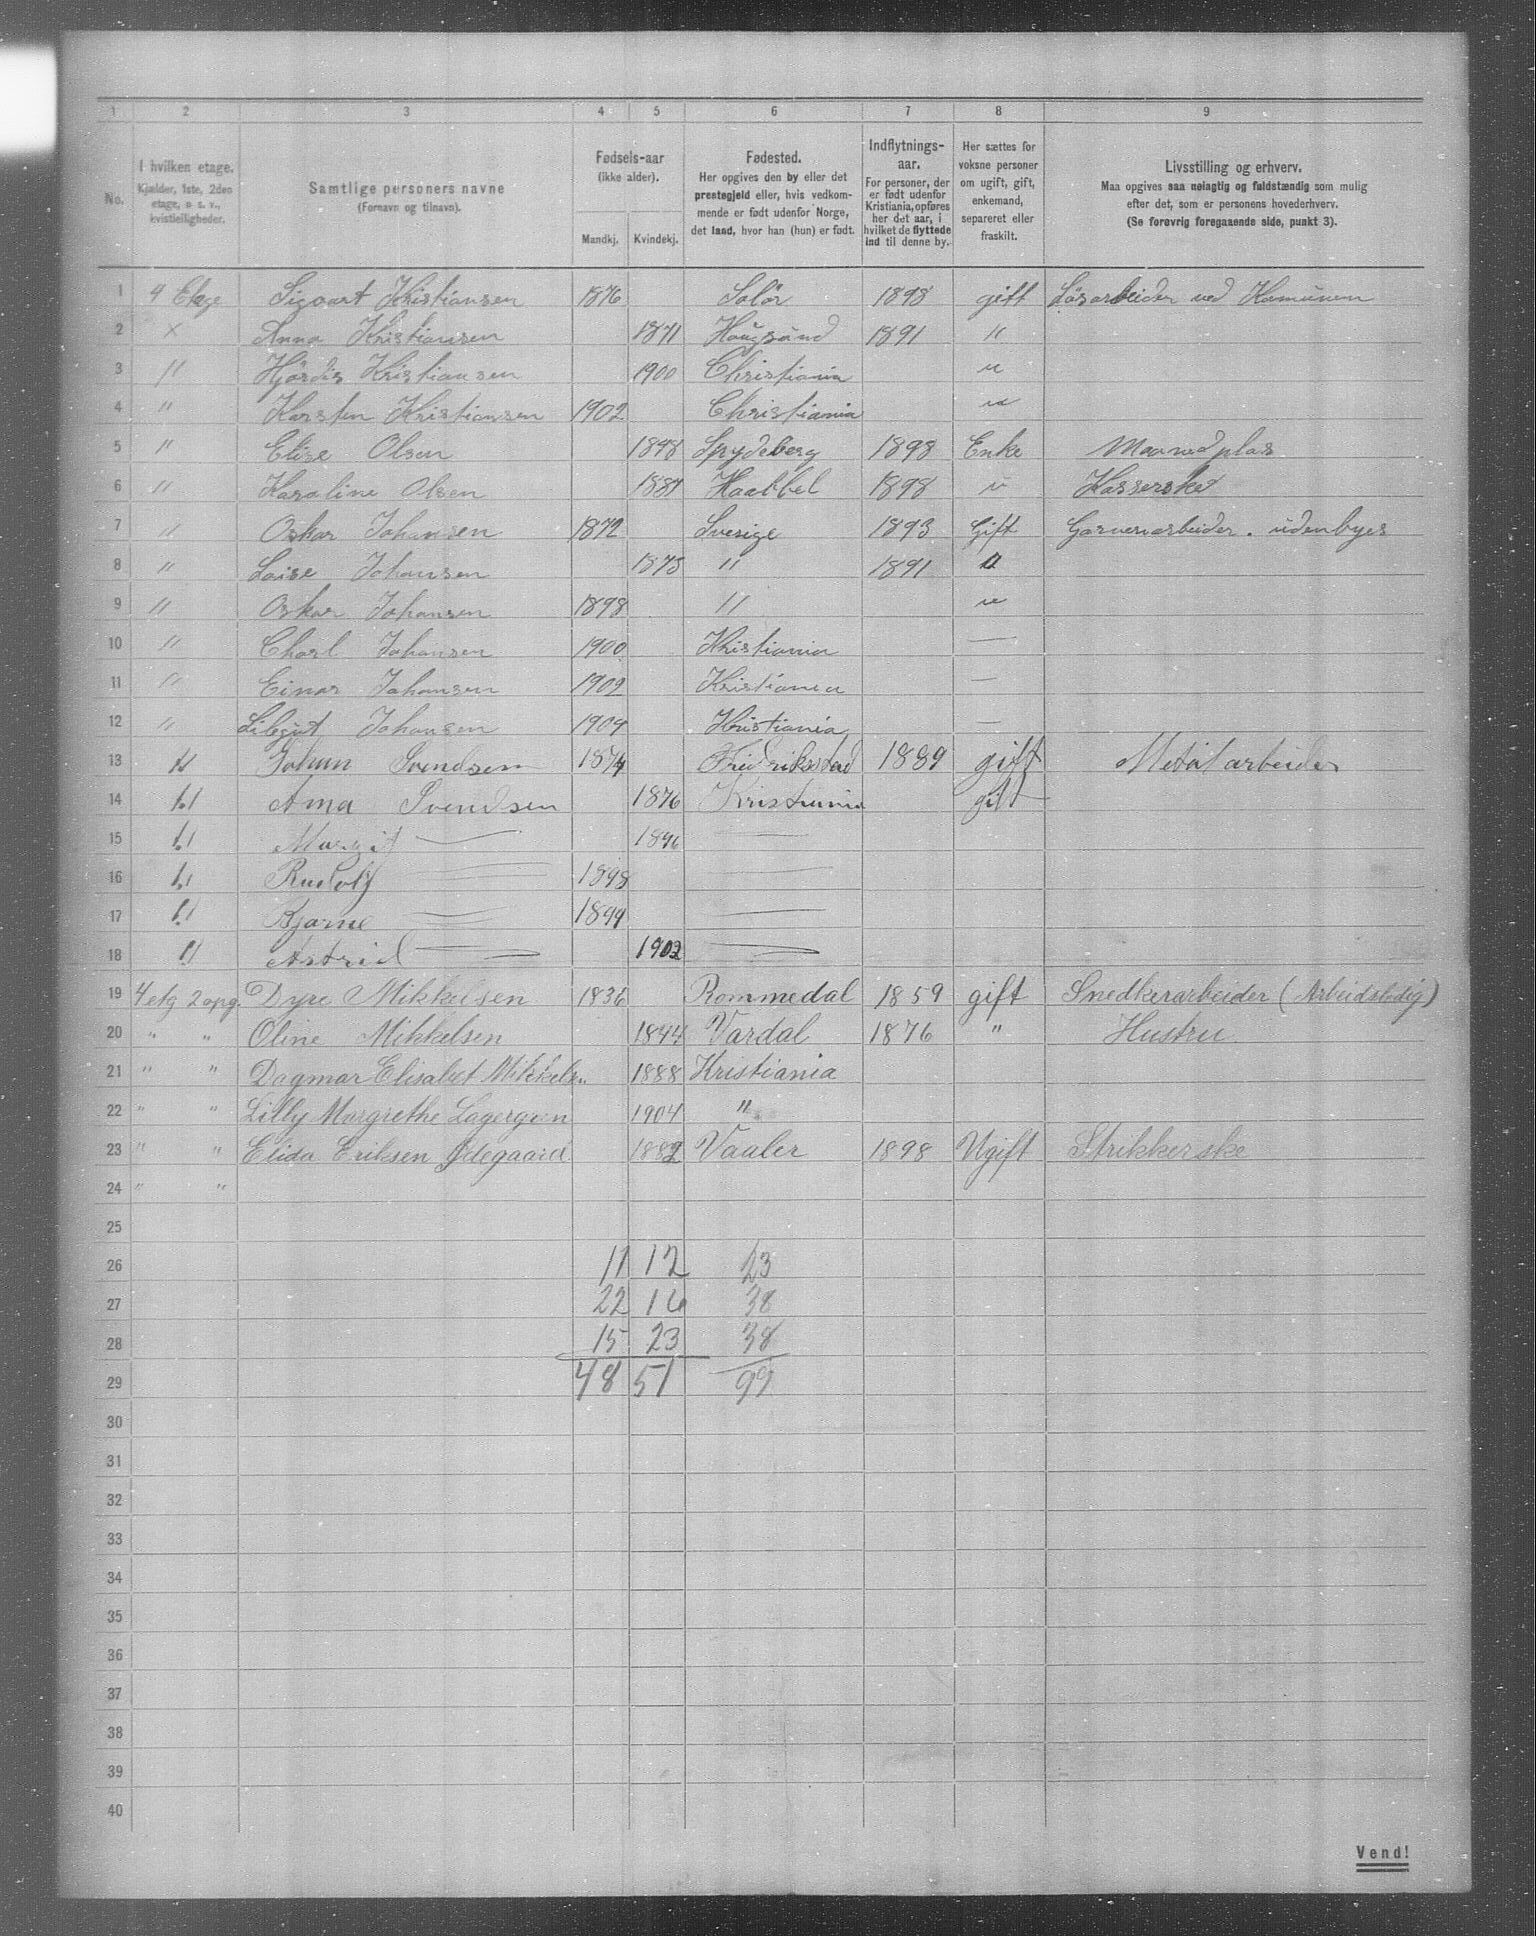 1 2 3 4 5 6 7 8 9
No.
I hvilken etage.
Kjælder, 1ste, 2den
etage, o s. v.,
kvistleiligheder.
Samtlige personers navne
(Fornavn og tilnavn).
Fødsels-aar
(ikke alder).
Mandkj. Kvindekj.
Fødested.
Her opgives den by eller det
prestegjeld eller, hvis vedkom-
mende er født udenfor Norge,
det land, hvor han (hun) er født.
Indflytnings-
aar.
For personer, der
er født udenfor
Kristiania, opføres
her det aar, i
hvilket de flyttede
ind til denne by.
Her sættes for
voksne personer
om ugift, gift,
enkemand,
separeret eller
fraskilt.
Livsstilling og erhverv.
Maa opgives saa nøiagtig og fuldstændig som mulig
efter det, som er personens hovederhverv.
(Se forøvrig foregaaende side, punkt 3).
1 4 Etage Sigvart Kristiansen 1876 Solør 1898 gift Løsarbeider ved Komunen
2 × Anna Kristiansen 1871 Hougsund 1891 "
3 " Hjørdis Kristiansen 1900 Christiania "
4 " Karsten Kristiansen 1902 Christiania "
5 " Elise Olsen 1848 Spydeberg 1898 Enke Maanedplas
6 " Karoline Olsen 1881 Haabbel 1898 u
7 " Oskar Johansen 1872 Sverige 1893 Gift Garverarbeider. udenbyes
8 " Loise Johansen 1875 " 1891 "
9 " Oskar Johansen 1898 " "
10 " Charl Johansen 1900 Kristiania —
11 " Einar Johansen 1902 Kristiania —
12 " Johansen 1904 Kristiania —
13 " Johan Svendsen 1874 Fredriksstad 1889 gift Metalarbeider
14 " Anna Svendsen 1876 Kristiania gift
15 " Margit — 1896 —
16 " Rudolf — 1898 —
17 " Bjarne — 1899 —
18 " Astrid — 1902 —
19 4 etg 2 opg. Dyre Mikkelsen 1836 Rommedal 1859 gift Snedkerarbeider (Arbeidsledig)
20 " " Oline Mikkelsen 1844 Vardal 1876 " Hustru
21 " " Dagmar Elisabet Mikkelsn. 1888 Kristiania
22 " " Lilly Margrethe Lagergren 1904 "
23 " " Elida Eriksen Ødegaard 1882 Vaaler 1898 Ugift Strikkerske
24 " "
25
26 11 12 23
27 22 16 38
28 15 23 38
29 48 51 99
30
31
32
33
34
35
36
37
38
39
40
Vend!